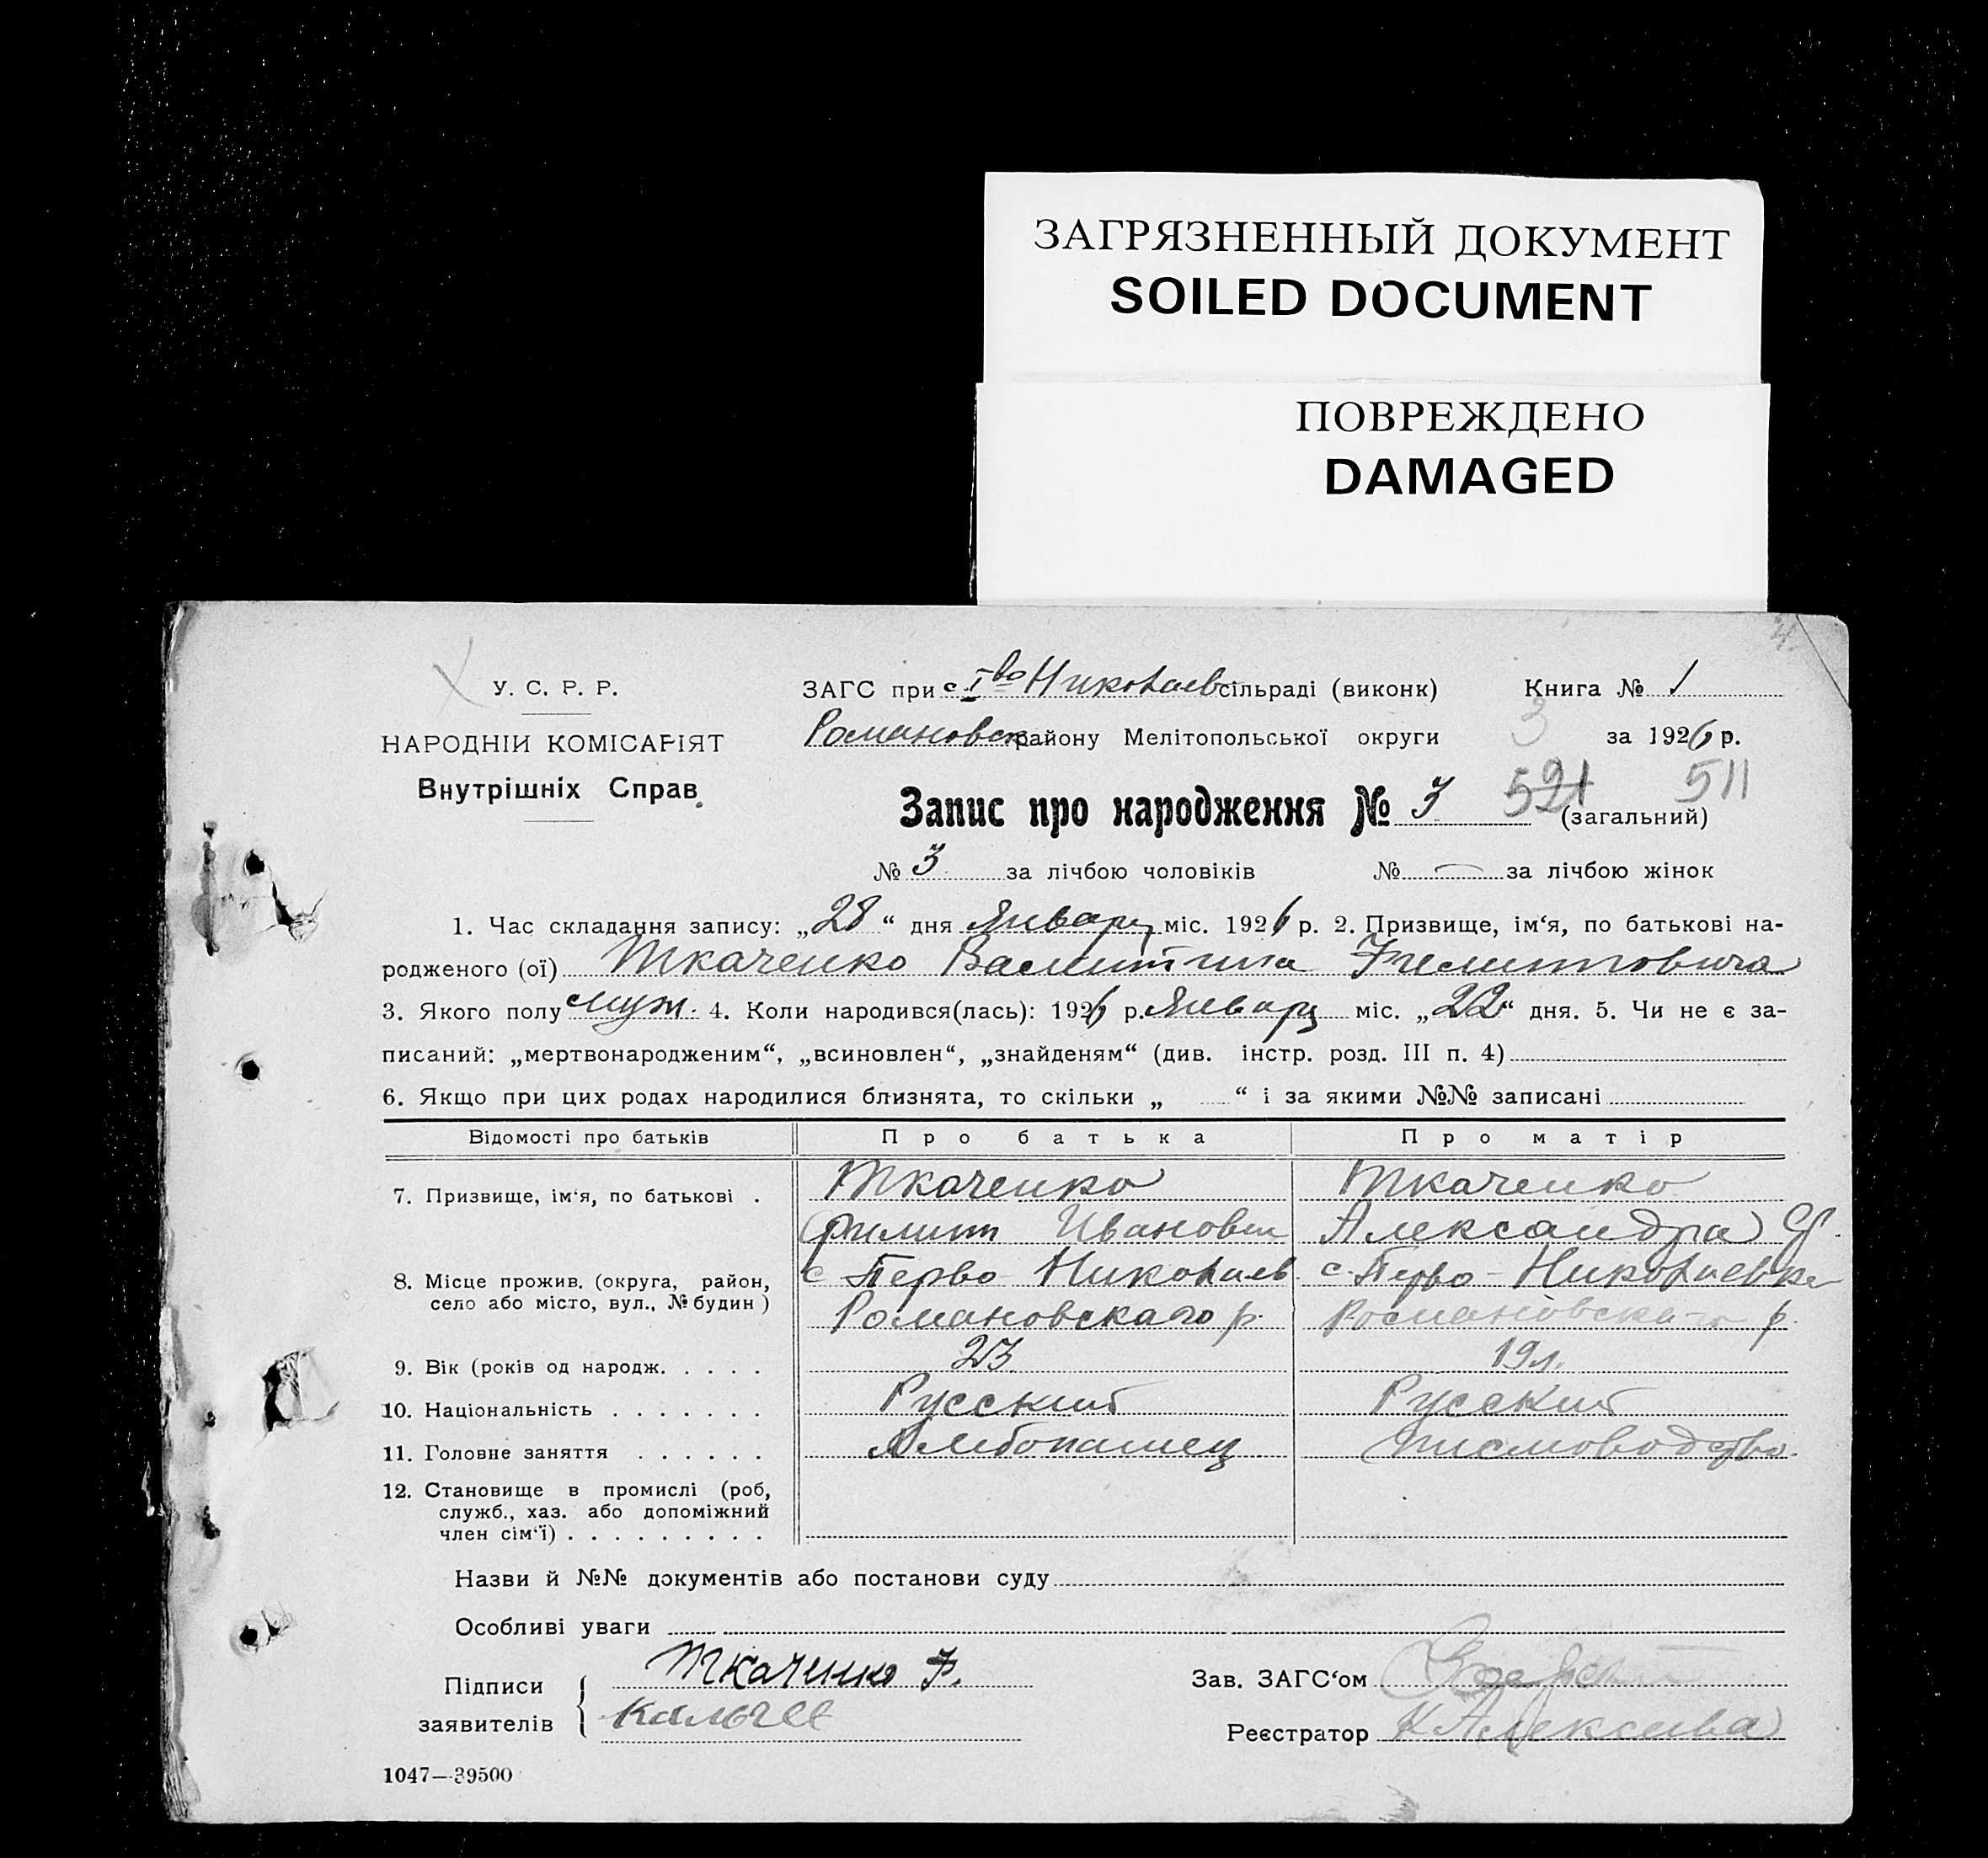 ЗАГРЯЗНЕННЫЙ ДОКУМЕНТ
SOILED DOCUMENT
ПОВРЕЖДЕНО
DAMAGED
4.
У. С. Р. Р.
НАРОДНІЙ КОМІСАРІЯТ
Внутрішніх Справ
ЗАГС при с. Iво Николаев сільраді (виконк) Книга № 1
Романовск району Мелітопольської округи 3 за 1926 р.
521 511
Запис про народження № 3 (загальний)
№ 3 за лічбою чоловіків № — за лічбою жінок
1. Час складання запису: „28“ дня Январц міс. 1926 р. 2. Призвище, ім‘я, по батькові на-
родженого (ої) Ткаченко Валинтина Филипповича
3. Якого полу муж. 4. Коли народився(лась): 1926 р. Январц міс. „22“ дня. 5. Чи не є за-
писаний: „мертвонародженим“, „всиновлен“, „знайденям“ (див. інстр. розд. III п. 4)
6. Якщо при цих родах народилися близнята, то скільки „ “ і за якими №№ записані
Відомості про батьків Про батька Про матір
7. Призвище, ім‘я, по батькові . Ткаченко Ткаченко
Филипп Иванович Александра
8. Місце прожив. (округа, район, с Перво Николаев. с. Перво-Николаевка
село або місто, вул., № будин) Романовскаго р. Романовскаго р.
9. Вік (років од народж. . . . . 23 19 л.
10. Національність . . . . . . . Русский Русский
11. Головне заняття . . . . . . Хлебопашец писмоводство.
12. Становище в промислі (роб,
служб., хаз. або допоміжний
член сім‘ї) . . . . . . . . .
Назви й №№ документів або постанови суду
Особливі уваги
Підписи Ткаченко Ф. Зав. ЗАГС‘ом
заявителів Реєстратор Н Алексеева
1047—39500